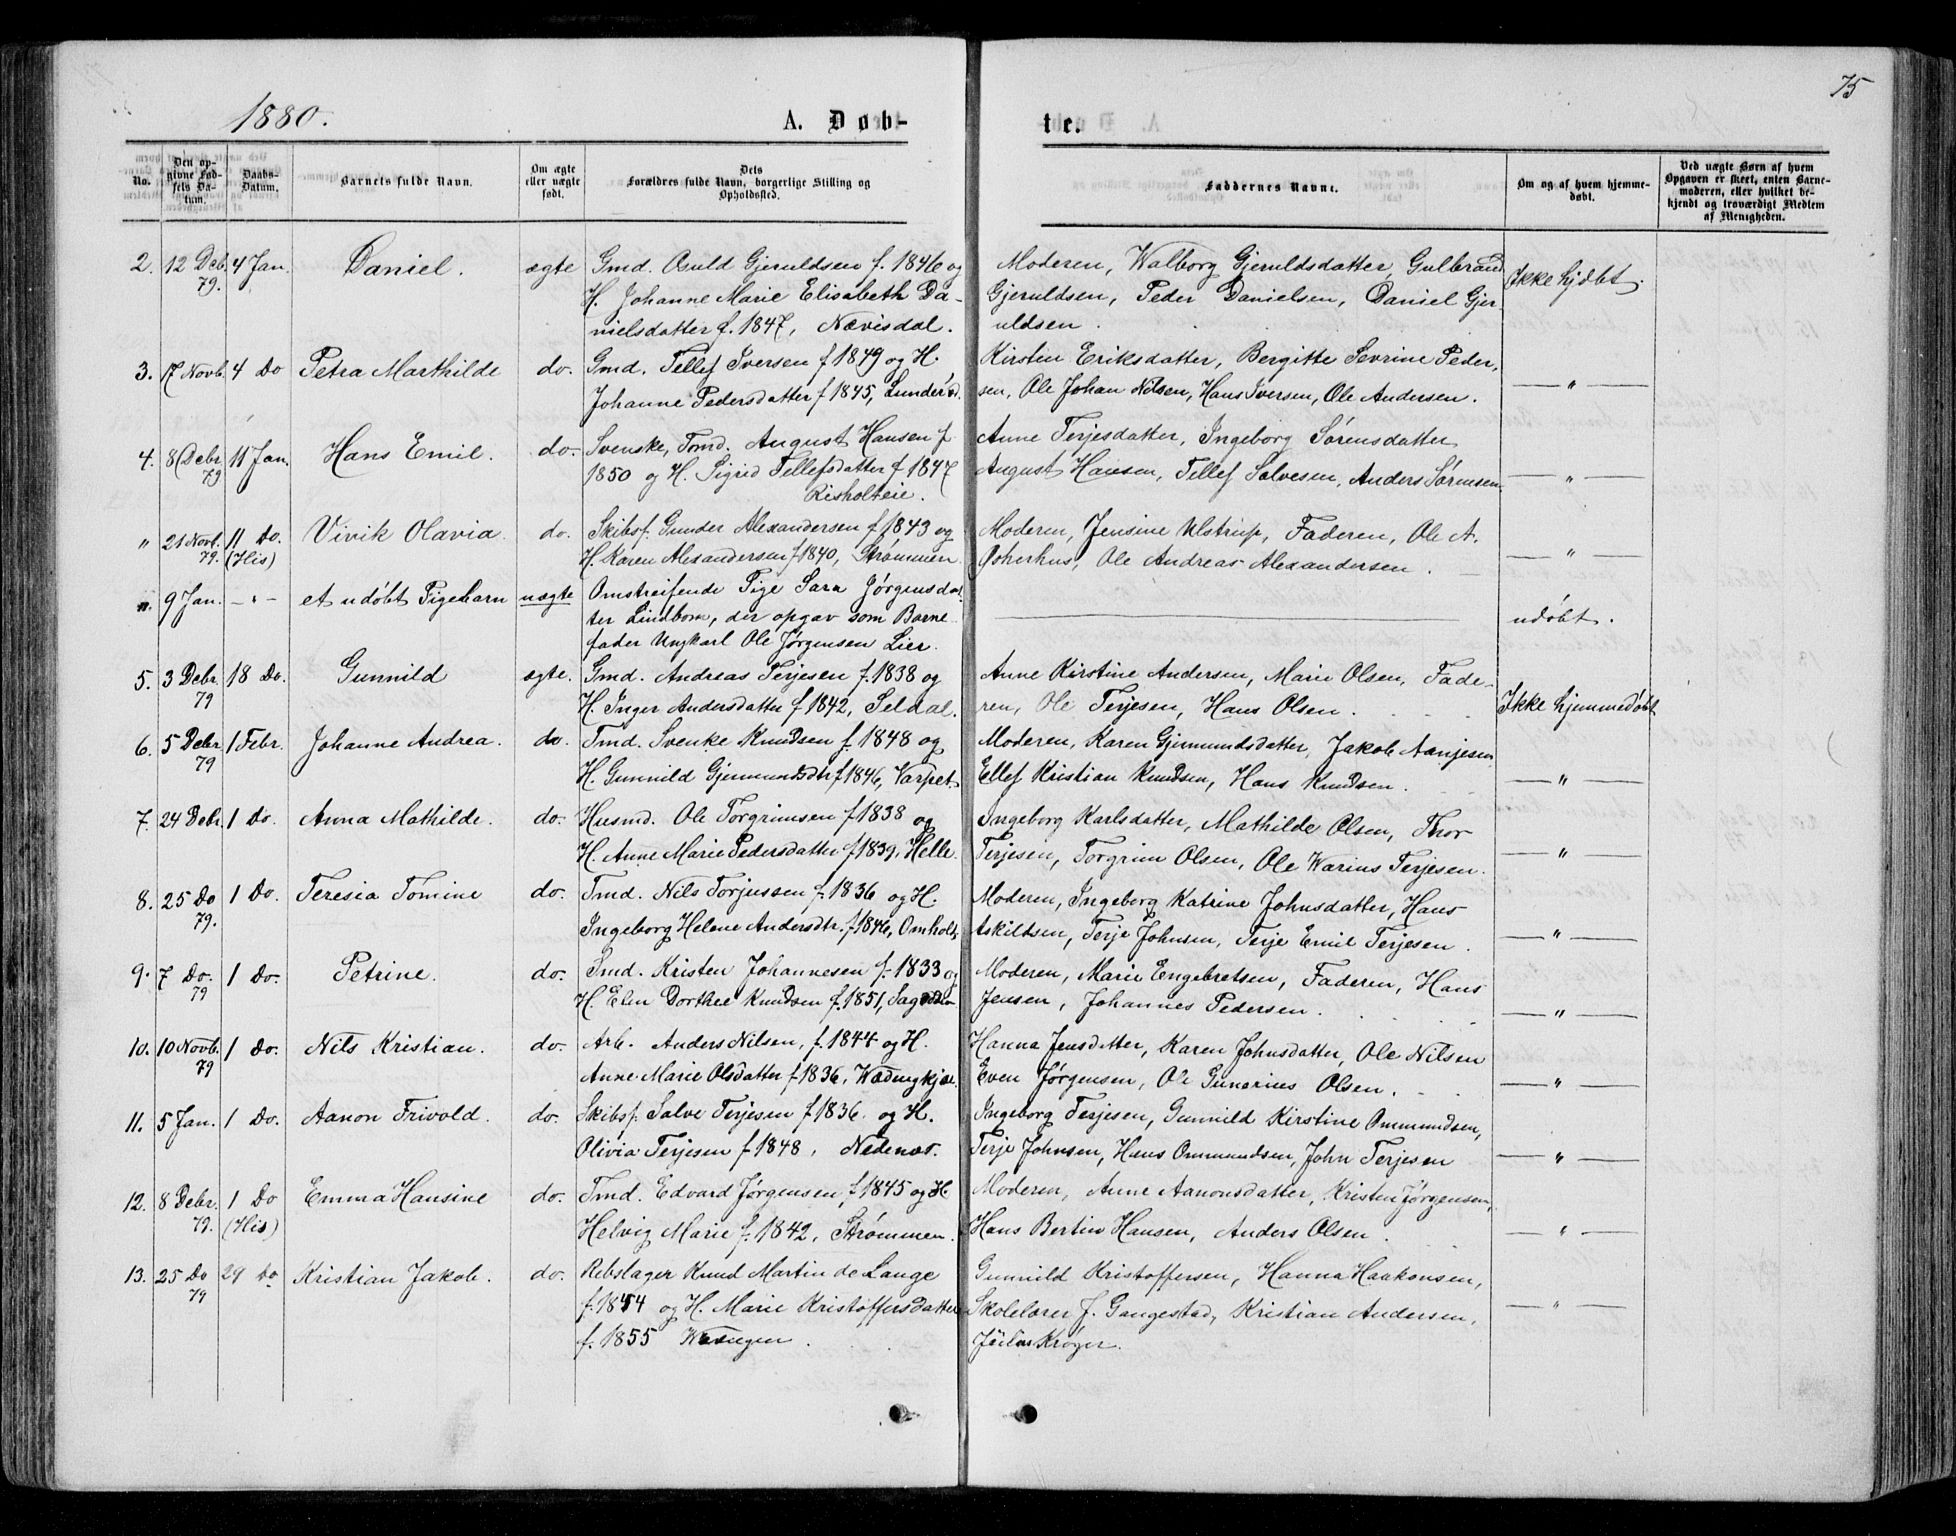 1880.
A. Døb-
te.
75
No.
Den op-
givne Fød-
sels Da-
tum.
Daabs-
Datum.
Barnets fulde Navn.
Om ægte
eller uægte
født.
Dets
Forældres fulde Navn, borgerlige Stilling og
Opholdssted.
Faddernes Navne.
Om og af hvem hjemme-
døbt.
Ved uægte Børn af hvem
Opgaven er skeet, enten Barne-
moderen, eller hvilket be-
kjendt og troværdigt Medlem
af Menigheden.
2. 12 Deb. 79. 4 Jan. Daniel. ægte Gmd. Osuld Gjeruldsen f. 1846 og
H. Johanne Marie Elisabeth Da-
nielsdatter f. 1847, Nævisdal.
Moderen, Walborg Gjeruldsdatter, Gulbrand
Gjeruldsen, Peder Danielsen, Daniel Gje-
ruldsen.
Ikke hjdbt.
3. 17 Novb. 4 Do Petra Marthilde do. Gmd. Tellef Iversen f 1849 og H.
Johanne Pedersdatter f 1845, Lunderød.
Kirsten Eriksdatter, Bergitte Sevrine Peder,
sen, Ole Johan Nilsen, Hans Iversen, Ole Andersen.
— " —
4. 8 Debr 79 11 Jan. Hans Emil. do. Svenske, Tmd. August Hansen f
1850 og H. Sigrid Tellefsdatter f 1847
Risholteie.
Anne Terjesdatter, Ingeborg Sørensdatter
August Hansen, Tellef Salvesen, Anders Sørensen.
— " —
" 21 Novb. 79. 11 Do. (His) Vivik Olavia. do. Skibsf. Gunder Alexandersen f 1843 og
H. Karen Alexandersen f 1840, Strømmen.
Moderen, Jensine Ulstrup, Faderen, Ole A.
Ole Andreas Alexandersen.
— " —
". 9 Jan. — " — et udøbt Pigebarn uægte Omstreifende Pige Sara Jørgensdat-
ter Lindbom, der opgav som Barne-
fader Ungkarl Ole Jørgensen Lier.
udøbt.
5. 3 Debr. 79 18 Do. Gunnild ægte. Gmd. Andreas Terjesen f. 1838 og
H. Inger Andersdatter f 1842, Seldal.
Anne Kirstine Andersen, Marie Olsen, Fade-
ren, Ole Terjesen, Hans Olsen.
Ikke hjemmedøbt
6. 5 Debr 79 1 Febr. Johanne Andrea. do. Tmd. Svenke Knudsen f. 1848 og
H. Gunnild Gjermundsdtr f 1846, Varpet.
Moderen, Karen Gjermundsdatter, Jakob Aanjesen
Ellef Kristian Knudsen, Hans Knudsen.
— " —
7. 24 Debr. 1 Do. Anna Mathilde. do. Husmd. Ole Torgrimsen f 1838 og
H. Anne Marie Pedersdatter f 1839, Helle.
Ingeborg Karlsdatter, Mathilde Olsen, Thor
Terjesen, Torgrim Olsen, Ole Warius Terjesen.
— " —
8. 25 Do 79. 1 Do. Teresia Tomine do. Tmd. Nils Torjussen f. 1836 og H.
Ingeborg Helene Andersdtr. f 1846, Omholt.
Moderen, Ingeborg Katrine Johnsdatter, Hans
Askildsen, Terje Johnsen, Terje Emil Terjesen.
— " —
9. 7 Do. 79 1 Do. Petrine. do. Smd. Kristen Johannesen f. 1833 og
H. Elen Dorthee Knudsen f. 1851,
Moderen, Marie Engebretsen, Faderen, Hans
Jensen, Johannes Pedersen.
— " —
10. 10 Novb. 79 1 Do. Nils Kristian. do. Arb. Anders Nilsen, f. 1844 og H.
Anne Marie Olsdatter f. 1836,
Hanna Jensdatter, Karen Johnsdatter, Ole Nilsen
Even Jørgensen, Ole Gunerius Olsen.
— " —
11. 5 Jan. 1 Do. Aanon Frivold. do. Skibsf. Salve Terjesen f 1836. og H.
Olivia Terjesen f 1848, Nedenæs.
Ingeborg Terjesen, Gunnild Kirstine Ommundsen,
Terje Johnsen, Hans Ommundsen, John Terjesen
— " —
12. 8 Debr. 79. 1 Do (His) Emma Hansine do. Tmd. Edvard Jørgensen, f 1845 og H.
Helvig Marie f. 1842, Strømmen.
Moderen, Anne Aanonsdatter, Kristen Jørgensen,
Hans Bertin Hansen, Anders Olsen.
— " —
13. 25 Do 79 29 Do Kristian Jakob. do. Rebslager Knud Martin de Lange
f. 1854 og H. Marie Kristoffersdatter
f. 1855 Wængen.
Gunnild Kristoffersen, Hanna Haakonsen,
Skolelærer J. Gangestad, Kristian Andersen,
Krøger.
— " —